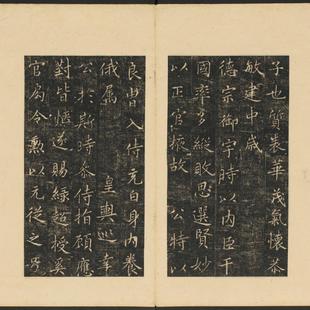 子也質表華茂氣懷恭
敏建中歲
德宗御宇時以内臣干
國率多縱敗思選賢妙
以正宫掖故 公特以
良胄入侍充白身内養
俄屬 皇輿巡幸
公於斯時叅侍指顧應
對皆愜遂賜緑超授奚
官局令勲以元從之号